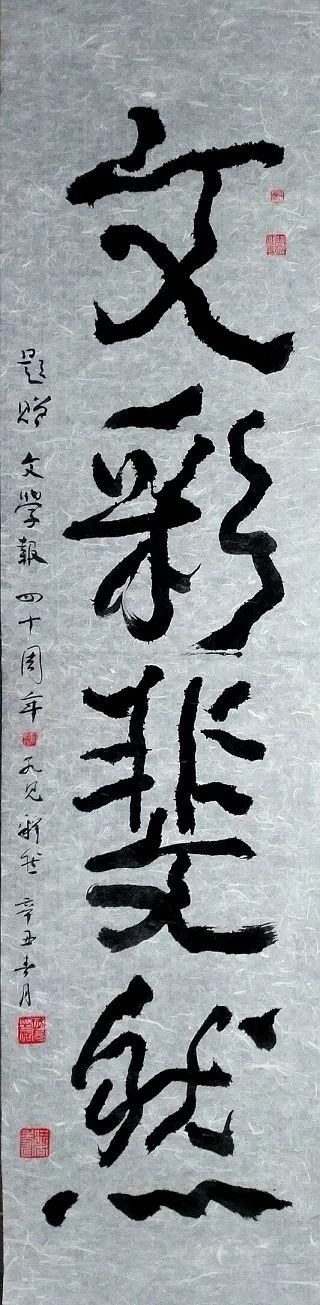 文彩斐然
題贈 文學報 四十周年 九兄 新然 辛丑春月